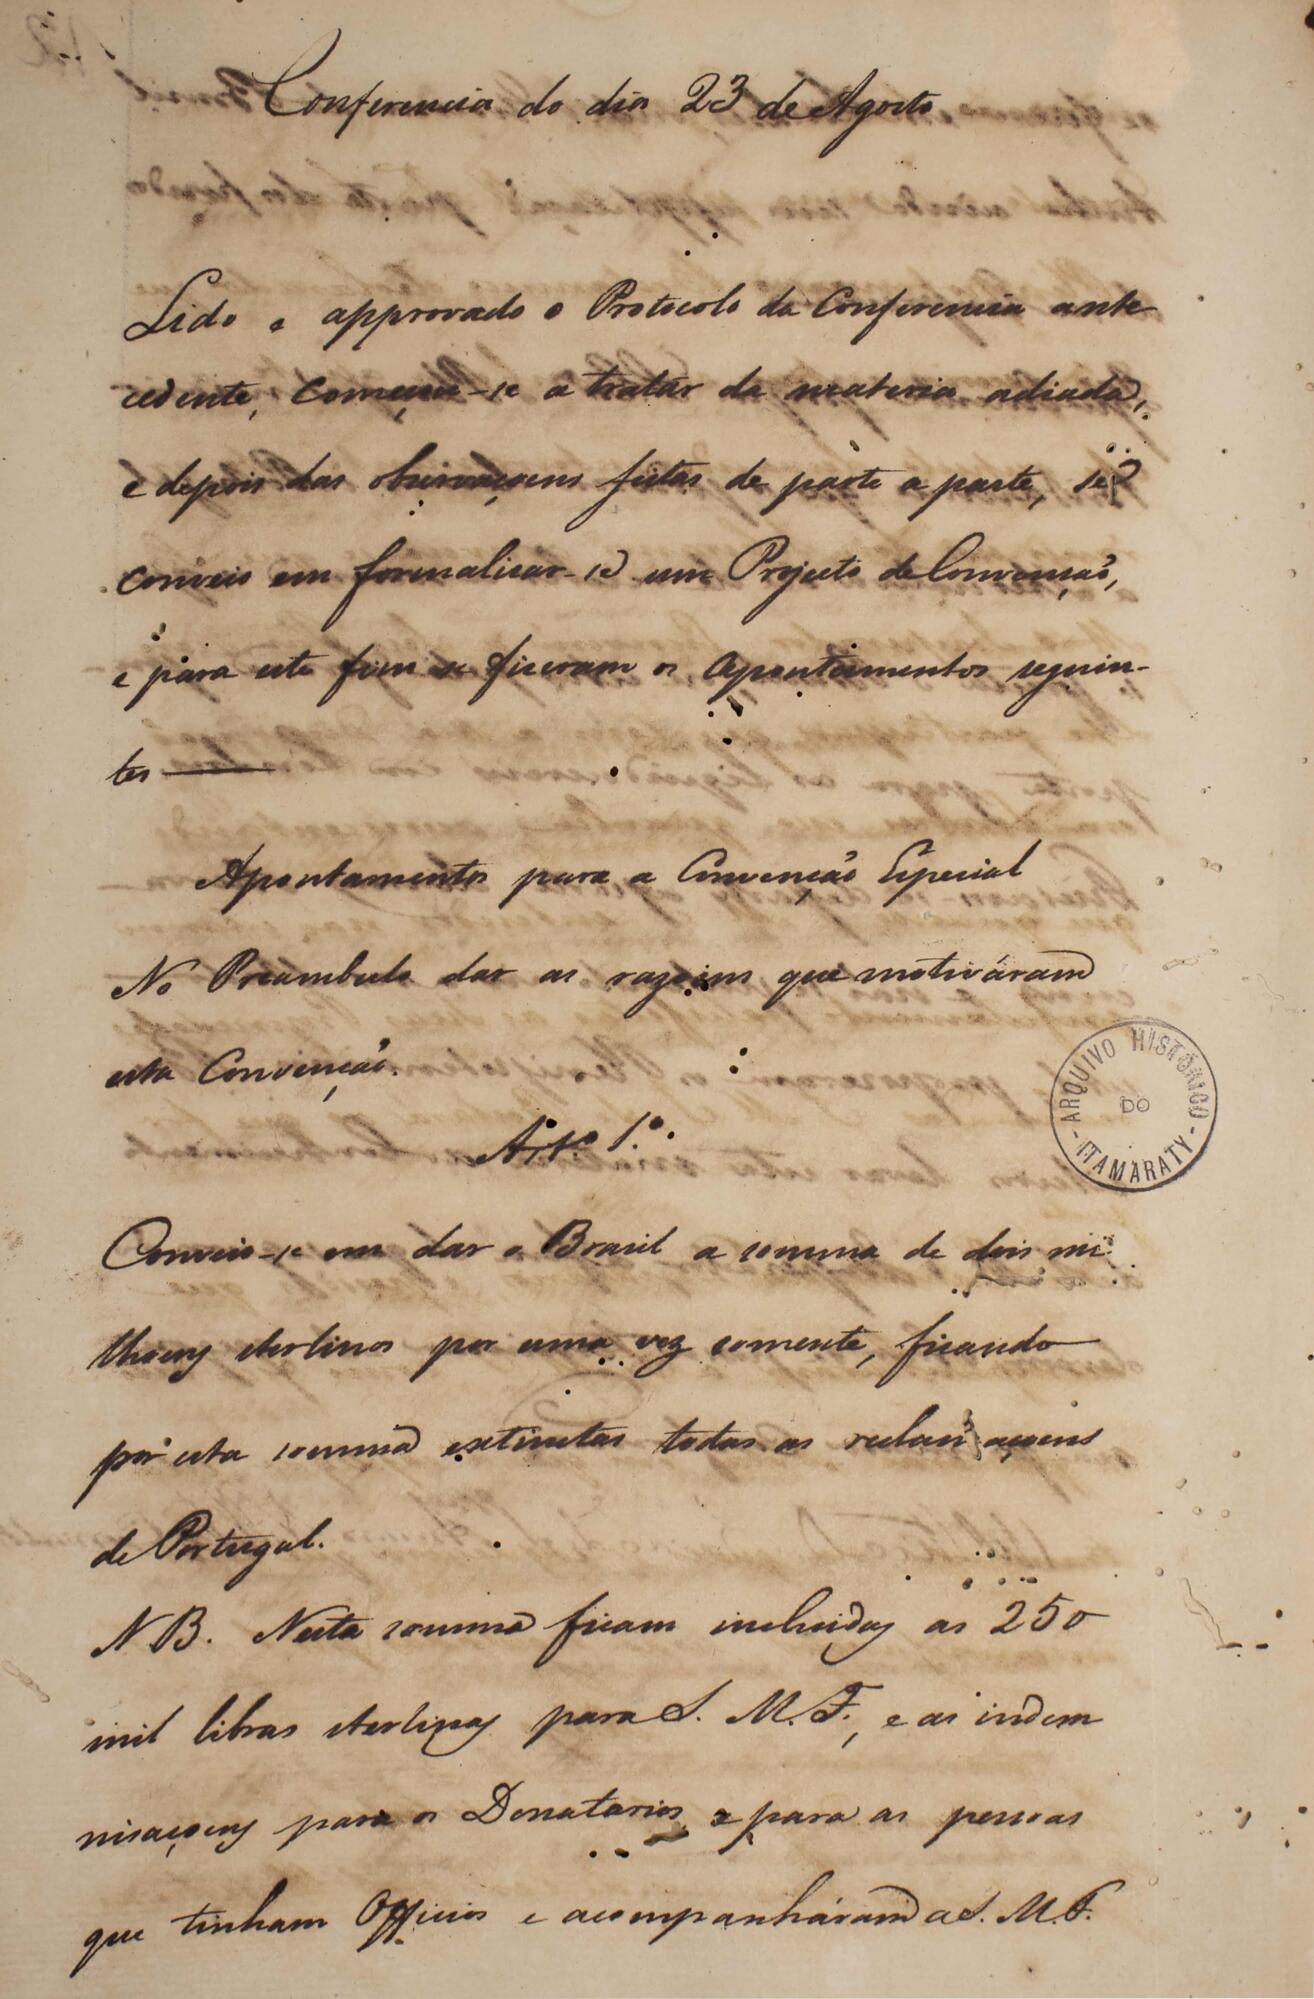 Conferencia do dia 23 de Agosto
Lido e approvado o Protocolo da Conferencia ante
cedente, começou-se a tratar da materia adiada,
e depois das observaçoens feitas de parte a parte, se
conveio em formalisar-se um Projecto de Convenção,
e para este fim se fizeram os Apontamentos seguin-
tes
Apontamentos para a Convenção Especial
No Preambulo dar as razoens que motiváram
esta Convenção.
Art.º 1.º
Conveio-se em dar o Brasil a somma de dois mi
lhoens sterlinos por uma vez somente, ficando
por esta somma extinctas todas as reclamaçoens
de Portugal.
NB. Nesta somma ficam incluidas as 250
mil libras sterlinas para S. M. F., e as indem
nisaçoens para os Donatarios, e para as pessoas
que tinham Officios e acompanháram a S. M. F.
ARQUIVO HISTÓRICO
DO
ITAMARATY